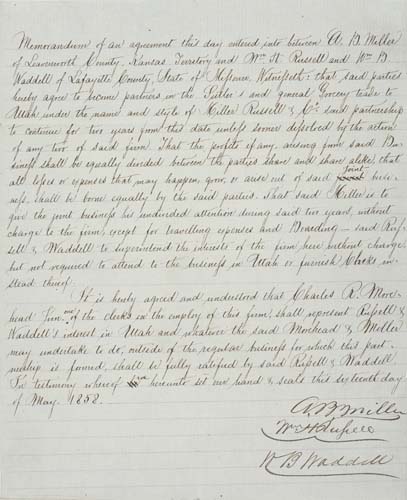 Memorandum of an agreement this day entered into between A. B. Miller
of Leavenworth County, Kansas Territory and Wm H. Russell and Wm B
Waddell of Lafayette County, State of Missouri, Witnesseth: that said parties
hereby agree to become partners in the Sutler's and general Grocery trade to
Utah under the name and style of Miller Russell & Co. said partnership
to continue for two years from this date unless sooner dissolved by the action
of any two of said firm. That the profits if any, arising from said Bu-
siness shall be equally divided between the parties share and share alike, that
all losses or expenses that may happen, grow, or arise out of said joint busi-
ness, shall be borne equally by the said parties. That said Miller is to
give the joint business his undivided attention during said two years, without
charge to the firm, except for travelling expenses and Boarding — said Rus-
sell & Waddell to superintend the interests of the firm here without charge
but not required to attend to the business in Utah or furnish Clerks in-
stead thereof.
It is hereby agreed and understood that Charles R. More-
head Jun. one of the clerks in the employ of this firm, shall represent Russell &
Waddell's interest in Utah and whatever the said Morehead & Miller
may undertake to do, outside of the regular business for which this part-
nership is formed, shall be fully ratified by said Russell & Waddell
In testimony whereof we hereunto set our hand & seals this sixteenth day
of May. 1858.
A. B. Miller
Wm H Russell
W B Waddell